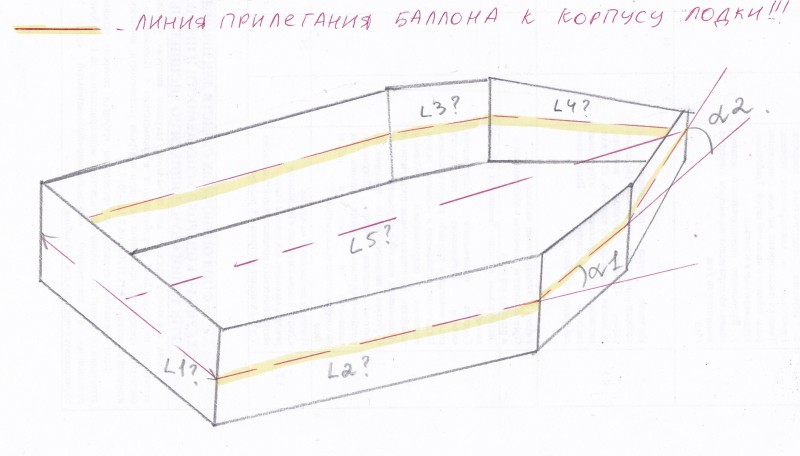 - ЛИНИЯ ПРИЛЕГАНИЯ БАЛЛОНА К КОРПУСУ ЛОДКИ!!!
L3?
L4?
α2.
L5?
α1
L1?
L2?